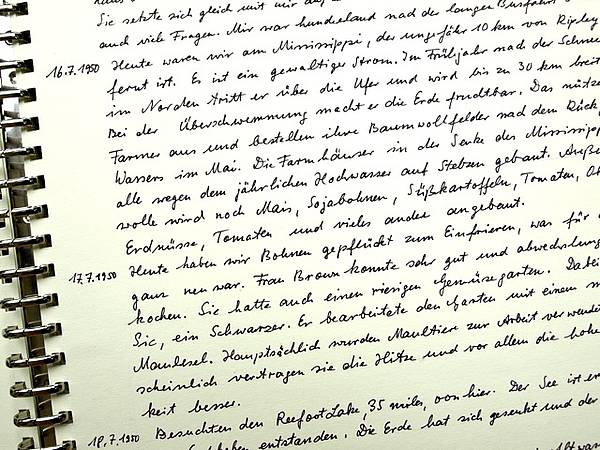 Sie setzte sich gleich mit mir auf
auch viele Fragen. Mir war hundeelend nach der langen Busfahrt
16.7.1950 Heute waren wir am Mississippi, der ungefähr 10 km von Ripley
fernt ist. Es ist ein gewaltiger Strom. Im Frühjahr nach der Schnee
im Norden tritt er über die Ufer und wird bis zu 30 km breit
Bei der Überschwemmung macht er die Erde fruchtbar. Das nütze
Farmer aus und bestellen ihre Baumwollfelder nach dem Rück
Wassers im Mai. Die Farmhäuser in der Senke des Mississipp
alle wegen dem jährlichen Hochwasser auf Stelzen gebaut. Auße
wolle wird noch Mais, Sojabohnen, Süßkartoffeln, Tomaten, Ok
Erdnüsse, Tomaten und vieles andere angebaut.
17.7.1950 Heute haben wir Bohnen gepflückt zum Einfrieren, was für
ganz neu war. Frau Brown konnte sehr gut und abwechslung
kochen. Sie hatte auch einen riesigen Gemüsegarten. Dabei
Sie, ein Schwarzer. Er bearbeitete den Garten mit einem
Maulesel. Hauptsächlich wurden Maultiere zur Arbeit verwende
scheinlich vertragen sie die Hitze und vor allem die hohe
keit besser.
18.7.1950 Besuchten den Reefoot Lake, 35 miles, von hier. Der See ist er
entstanden. Die Erde hat sich gesenkt und der